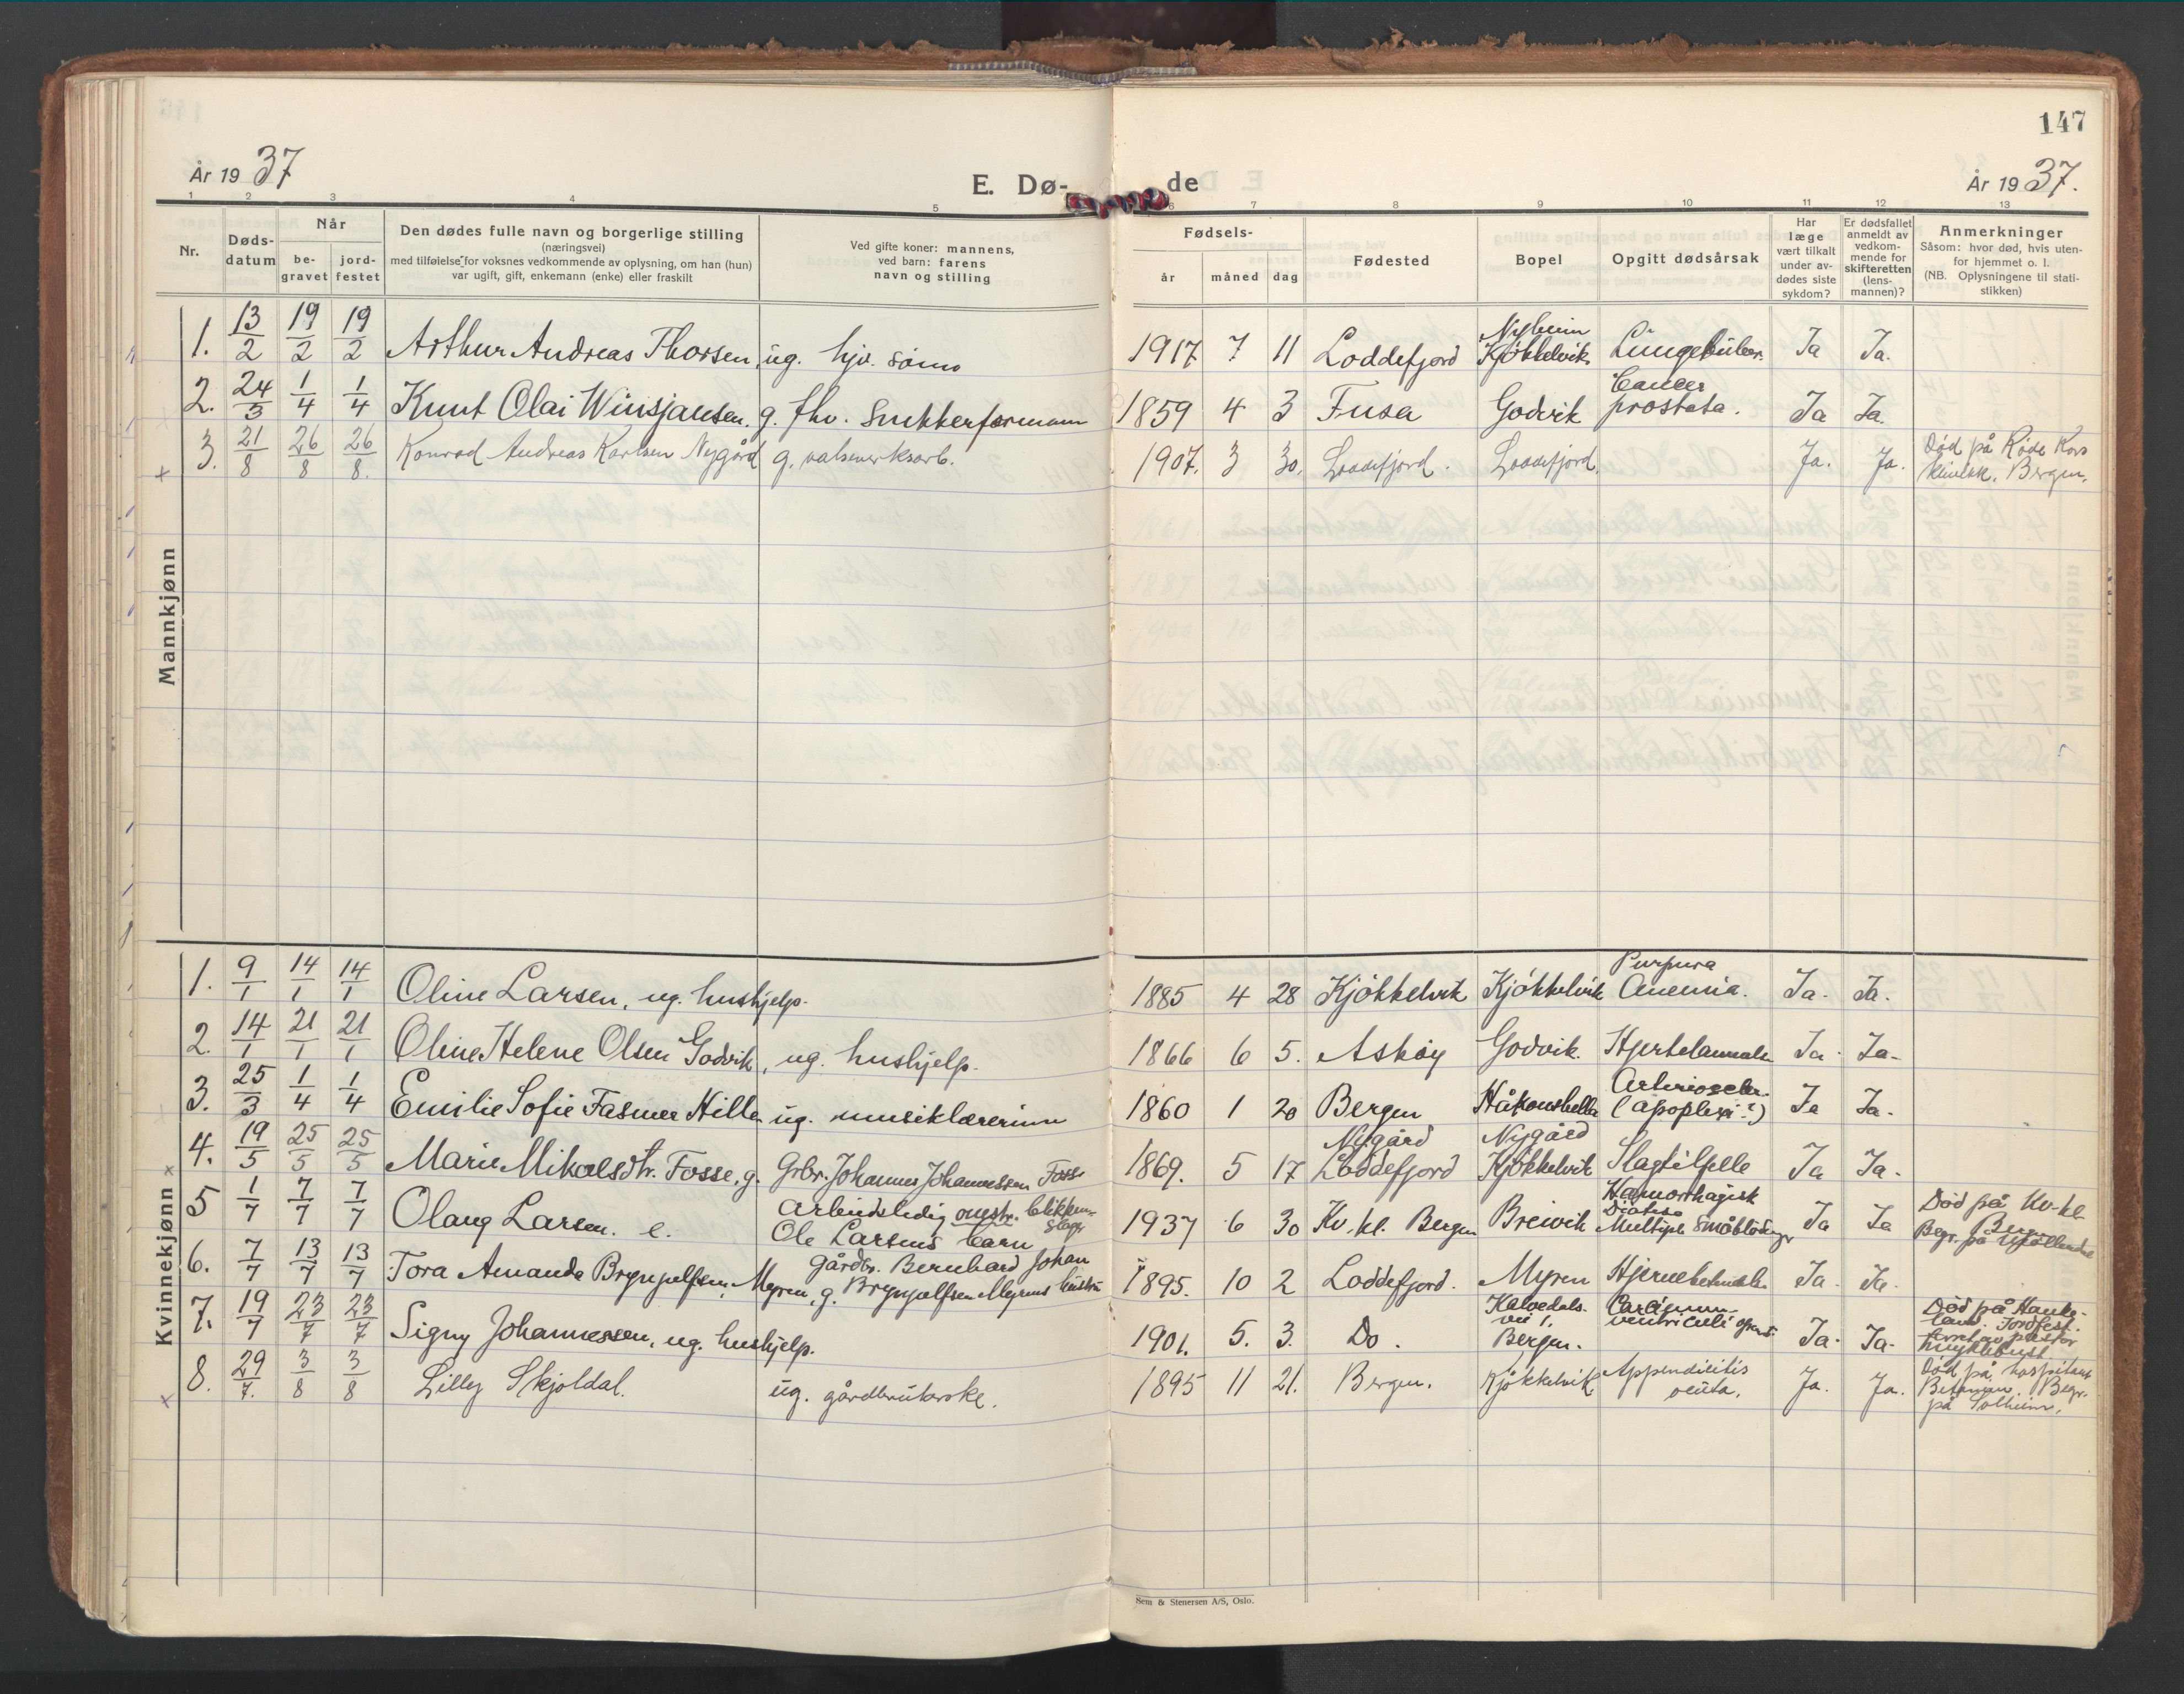 147
År 19 37
E. Dø-
de
År 19 37.
1 2 3 4 5 6 7 8 9 10 11 12 13
Nr.
Døds-
datum
Når
be-
gravet
jord-
festet
Den dødes fulle navn og borgerlige stilling
(næringsvei)
med tilføielse for voksnes vedkommende av oplysning, om han (hun)
var ugift, gift, enkemann (enke) eller fraskilt
Ved gifte koner: mannens,
ved barn: farens
navn og stilling
Fødsels-
år
måned
dag
Fødested
Bopel
Opgitt dødsårsak
Har
læge
vært tilkalt
under av-
dødes siste
sykdom?
Er dødsfallet
anmeldt av
vedkom-
mende for
skifteretten
(lens-
mannen)?
Anmerkninger
Såsom: hvor død, hvis uten-
for hjemmet o. l.
(NB. Oplysningene til stati-
stikken)
Mannkjønn
1. 13/2 19/2 19/2 Arthur Andreas Thorsen, ug. hjv. sønn 1917 7 11 Loddefjord Nyheim Kjøkkelvik Lungetuber. Ja Ja.
2. 24/3 1/4 1/4 Knut Olai Winsjansen. g. fhv. snekkerformann 1859 4 3 Fusa Godvik Cancer prostata. Ja Ja.
3. 21/8 26/8 26/8. Konrad Andreas Karlsen Nygård g. valseverksarb. 1907. 3 30. Loddefjord. Loddefjord. Ja. Ja. Død på Røde Kors
klinikk. Bergen.
Kvinnekjønn
1. 9/1 14/1 14/1 Oline Larsen, ug. hushjelp. 1885 4 28 Kjøkkelvik Kjøkkelvik Purpura Anemia. Ja. Ja.
2. 14/1 21/1 21/1 Oline Helene Olsen Godvik, ug. hushjelp. 1866 6 5. Askøy Godvik. Hjertelammelse Ja. Ja.
3. 25/3 1/4 1/4 Emilie Sofie Fasmer Hille ug. musiklærerinne 1860 1 20 Bergen Håkonshella Arterioscler. (apoplexi?) Ja Ja.
4. 19/5 25/5 25/5 Marie Mikalsdtr. Fosse, g. Grbr. Johannes Johannessen Fosse 1869. 5 17 Nygård Loddefjord Nygård Kjøkkelvik Slagtilfelle Ja Ja.
5 1/7 7/7 7/7 Olaug Larsen. e. Arbeidsledig blikken-
slager
Ole Larsens barn 1937 6 30 Kv.kl. Bergen Breivik Hæmorrhagisk
Diatese
Multiple Småblødnger Ja Ja Død på Kv.kl.
Bergen
Begr. på Møllendal
6. 7/7 13/7 13/7 Tora Amanda Brynjulfsen, Myren, g. Gårdbr. Bernhard Johan
Brynjulfsen Myrens hustru 1895. 10 2 Loddefjord. Myren Ja. Ja.
7. 19/7 23/7 23/7 Signy Johannessen, ug. hushjelp. 1901. 5. 3. Do. Kalvedals-
vei 1,
Bergen. Carcinom
ventriculi operat. Ja. Ja. Død på Hauke-
land. Jordfest.
8. 29/7. 3/8 3/8 Lilly Skjoldal. ug. gårdbrukerske. 1895 11 21. Bergen. Kjøkkelvik Appendicitis
acuta. Ja. Ja. Død på hospitalet
Betanien. Begr.
på Solheim.
Sem & Stenersen A/S, Oslo.